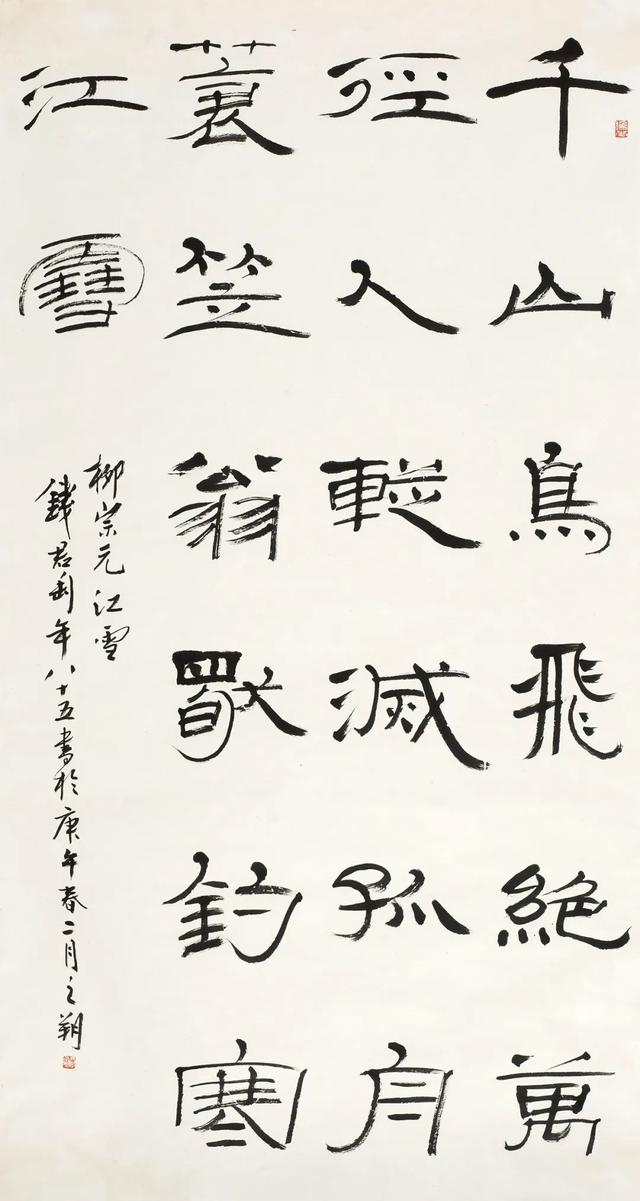 千山鳥飛絕萬
徑人蹤滅孤舟
蓑笠翁獨釣寒
江雪
柳宗元江雪
錢君匋年八十五書於庚午春二月之朔